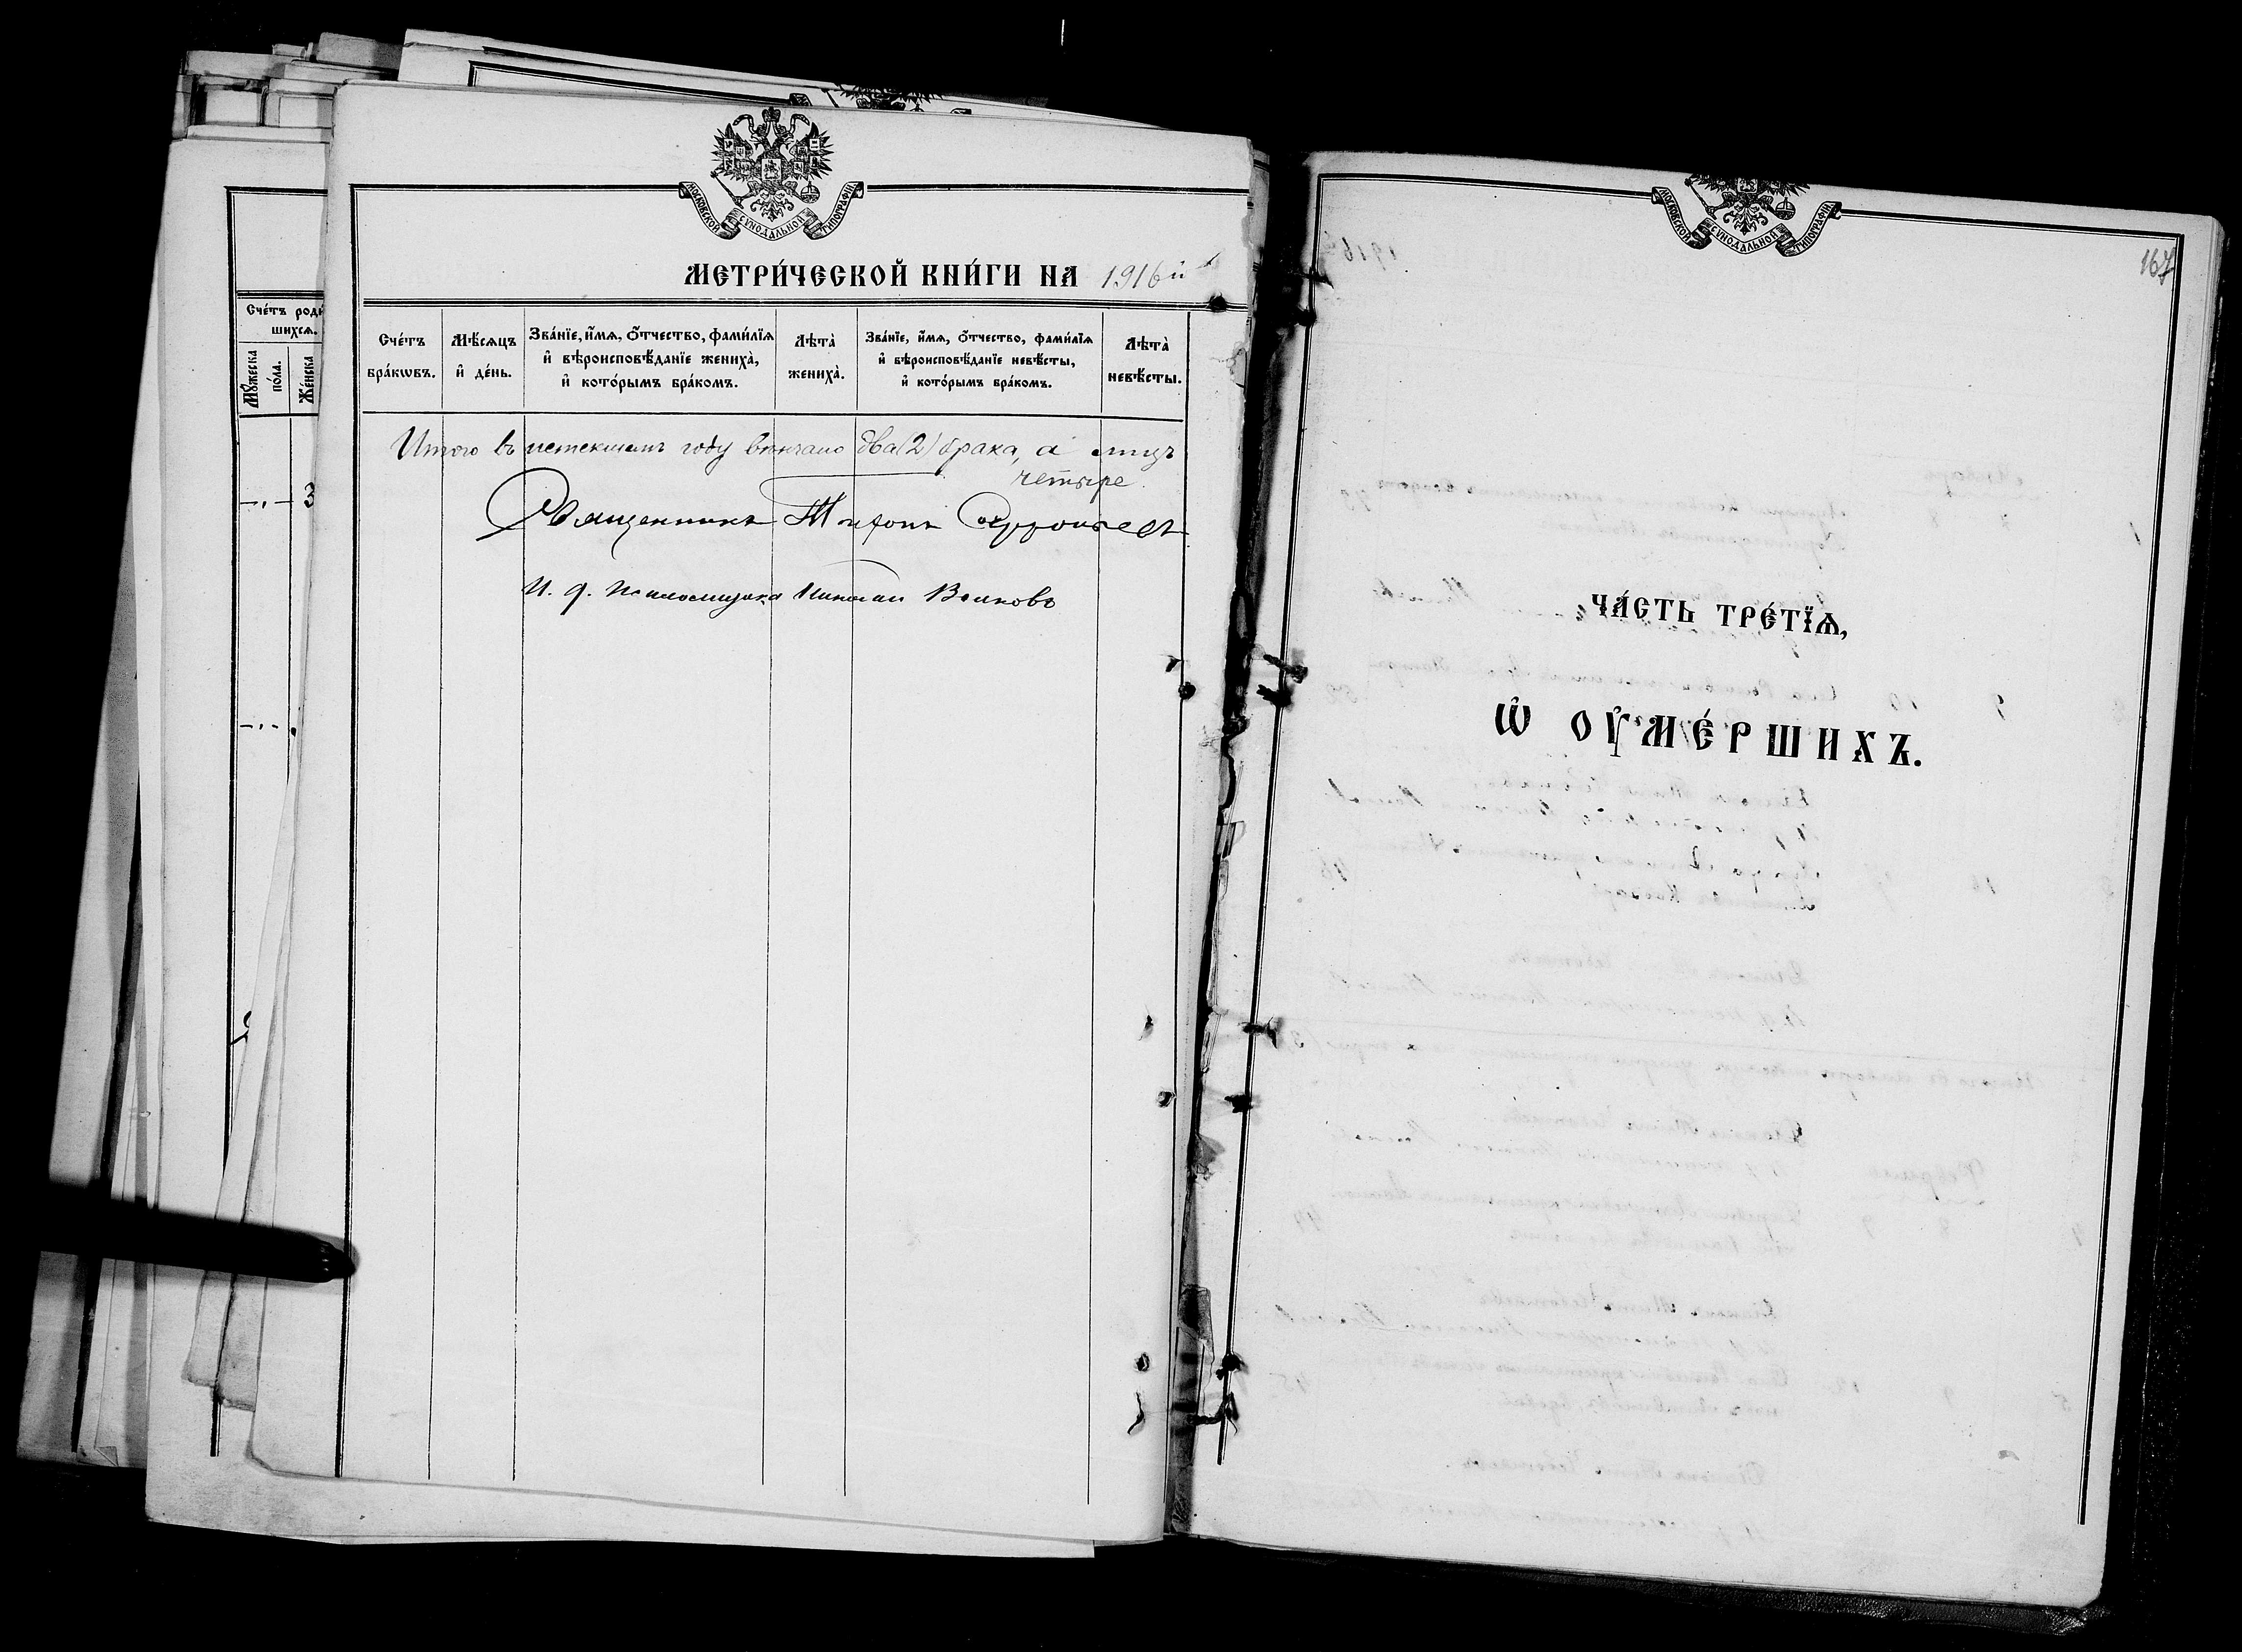 МОСКОВСКОЙ СѴНОДАЛЬНОЙ ТИПОГРАФІИ
МЕТРИ́ЧЕСКОЙ КНИ́ГИ НА 1916й
Сче́тъ роди
шихсѧ.
Мꙋ́жеска
по́ла.
Же́нска
3
Сче́тъ
бра́кѡвъ.
Мѣ́сѧцъ
и҆ де́нь.
Зва́нїе, и҆́мѧ, ѻ҆́тчество, фами́лїѧ
и҆ вѣроисповѣ́данїе жениха̀,
и҆ кото́рымъ бра́комъ.
Лѣта̀
жениха̀.
Зва́нїе, и҆́мѧ, ѻ҆́тчество, фами́лїѧ
и҆ вѣроисповѣ́данїе невѣ́сты,
и҆ кото́рымъ бра́комъ.
Лѣта̀
невѣ́сты.
Итого въ истекшемъ году вѣнчано два (2) брака, а лицъ
четыре.
Священникъ Тихонъ
И. д. псаломщика Николай Волковъ
МОСКОВСКОЙ СѴНОДАЛЬНОЙ ТИПОГРАФІИ
167
ЧА́СТЬ ТРЕ́ТЇѦ,
Ѡ҆ ОУ҆МЕ́РШИХЪ.